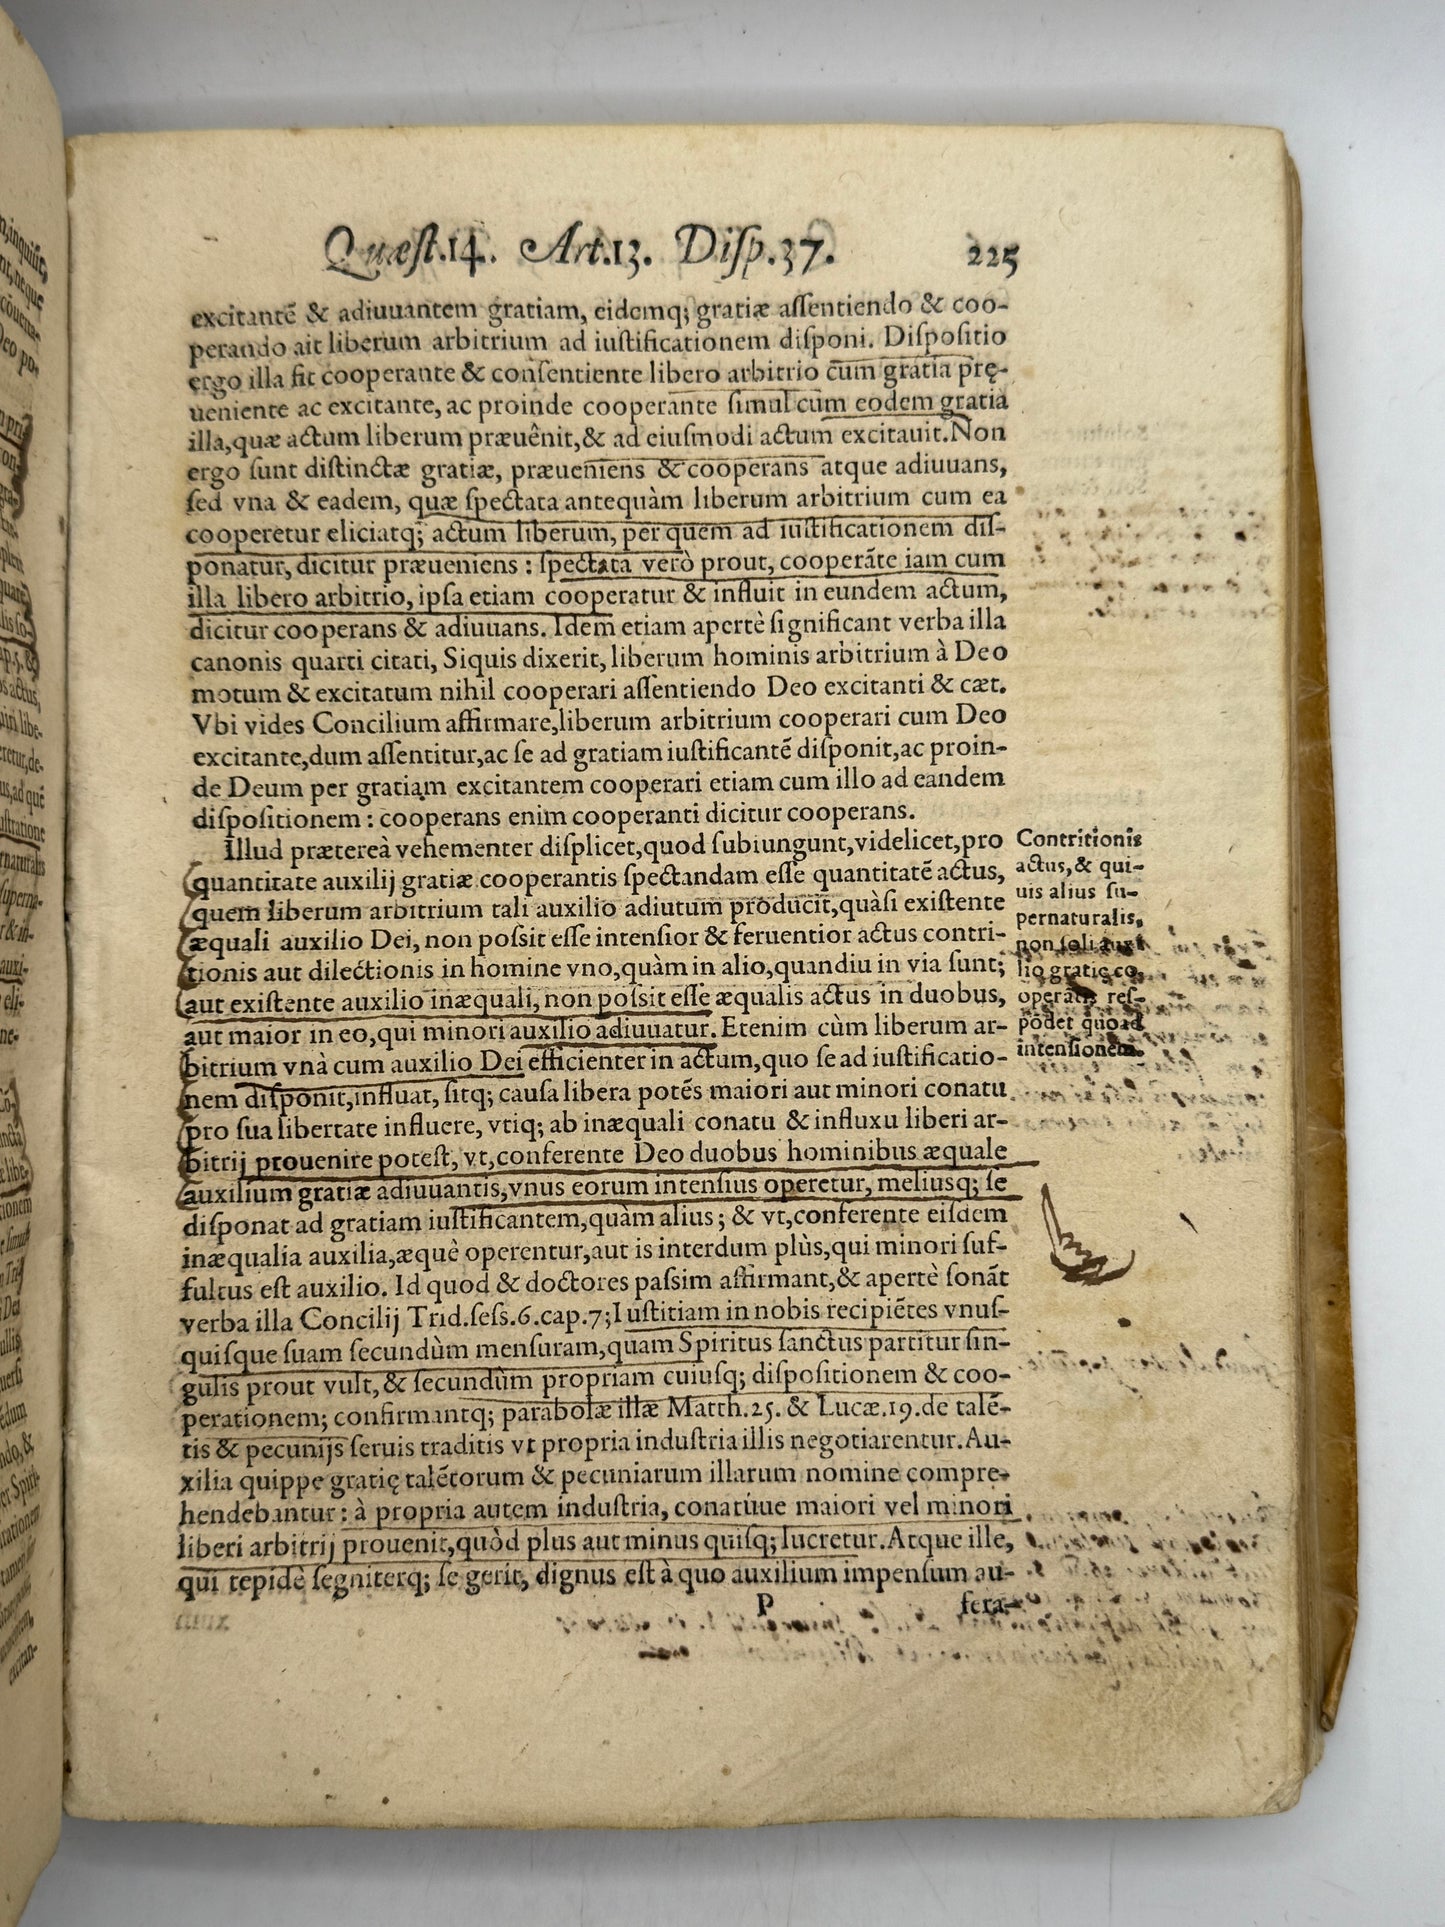 Quæſt.14. Art.13. Diſp.37. 225
excitantẽ & adiuuantem gratiam, eidemq; gratiæ aſſentiendo & coo-
perando ait liberum arbitrium ad iuſtificationem diſponi. Diſpoſitio
ergo illa fit cooperante & conſentiente libero arbitrio cum gratia prę-
ueniente ac excitante, ac proinde cooperante ſimul cum eodem gratia
illa, quæ actum liberum præuênit, & ad eiuſmodi actum excitauit. Non
ergo ſunt diſtinctæ gratiæ, præueniens & cooperans atque adiuuans,
ſed vna & eadem, quæ ſpectata antequàm liberum arbitrium cum ea
cooperetur eliciatq; actum liberum, per quem ad iuſtificationem diſ-
ponatur, dicitur præueniens : ſpectata verò prout, cooperãte iam cum
illa libero arbitrio, ipſa etiam cooperatur & influit in eundem actum,
dicitur cooperans & adiuuans. Idem etiam apertè ſignificant verba illa
canonis quarti citati, Siquis dixerit, liberum hominis arbitrium à Deo
motum & excitatum nihil cooperari aſſentiendo Deo excitanti & cæt.
Vbi vides Concilium affirmare, liberum arbitrium cooperari cum Deo
excitante, dum aſſentitur, ac ſe ad gratiam iuſtificantẽ diſponit, ac proin-
de Deum per gratiam excitantem cooperari etiam cum illo ad eandem
diſpoſitionem : cooperans enim cooperanti dicitur cooperans.
Illud prætereà vehementer diſplicet, quod ſubiungunt, videlicet, pro
quantitate auxilij gratiæ cooperantis ſpectandam eſſe quantitatẽ actus,
quem liberum arbitrium tali auxilio adiutum producit, quàſi exiſtente
æquali auxilio Dei, non poſsit eſſe intenſior & feruentior actus contri-
tionis aut dilectionis in homine vno, quàm in alio, quandiu in via ſunt;
aut exiſtente auxilio inæquali, non poſsit eſſe æqualis actus in duobus,
aut maior in eo, qui minori auxilio adiuuatur. Etenim cùm liberum ar-
bitrium vnà cum auxilio Dei efficienter in actum, quo ſe ad iuſtificatio-
nem diſponit, influat, ſitq; cauſa libera potẽs maiori aut minori conatu
pro ſua libertate influere, vtiq; ab inæquali conatu & influxu liberi ar-
bitrij prouenire poteſt, vt, conferente Deo duobus hominibus æquale
auxilium gratiæ adiuuantis, vnus eorum intenſius operetur, meliusq; ſe
diſponat ad gratiam iuſtificantem, quàm alius ; & vt, conferente eiſdem
inæqualia auxilia, æquè operentur, aut is interdum plùs, qui minori ſuf-
fultus eſt auxilio. Id quod & doctores paſsim affirmant, & apertè ſonãt
verba illa Concilij Trid. ſeſs.6.cap.7; Iuſtitiam in nobis recipiẽtes vnuſ-
quiſque ſuam ſecundùm menſuram, quam Spiritus ſanctus partitur ſin-
gulis prout vult, & ſecundùm propriam cuiuſq; diſpoſitionem & coo-
perationem; confirmantq; parabolæ illæ Matth.25. & Lucæ.19. de talẽ-
tis & pecunijs ſeruis traditis vt propria induſtria illis negotiarentur. Au-
xilia quippe gratię talẽtorum & pecuniarum illarum nomine compre-
hendebantur : à propria autem induſtria, conatúue maiori vel minori
liberi arbitrij prouenit, quòd plus aut minus quiſq; lucretur. Atque ille,
qui tepidè ſegniterq; ſe gerit, dignus eſt à quo auxilium impenſum au-
P fera-
Contritionis
actus, & qui-
uis alius ſu-
pernaturalis,
non ſoli auxi
lio gratię co,
operãtis reſ-
põdet quoad
intenſionem.